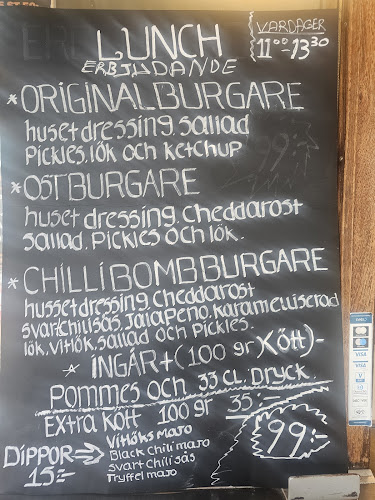 LUNCH
ERBJUDANDE
VARDAGER
11⁰⁰-13³⁰
*ORIGINALBURGARE
husetdressing. sallad
Pickles. lök och ketchup
99:-
*OSTBURGARE
husetdressing. Cheddarost
sallad. Pickles och lök.
*CHILLIBOMBBURGARE
hussetdressing. Cheddarost
svartchilisås, Jalapeno, karameluiserad
lök. vitlök. sallad och Pickles.
* INGÅR+(100 gr)Kött)-
Pommes och 33 cl. Dryck
EXTRA KÖTT 100 gr 35:-
DIPPOR→
15:-
Vitlöks majo
Black Chili majo
Svart Chili sås
Tryffel majo
99:-
VISA
VISA